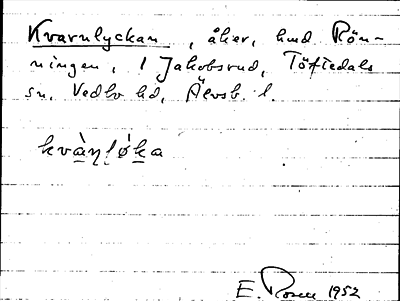 Kvarnlyckan, åker, hmd Rön-
ningen, 1 Jakobsrud, Töftedals
sn, Vedbo hd, Älvsb. l.
kvàɳļǿka
E. Rosen 1952